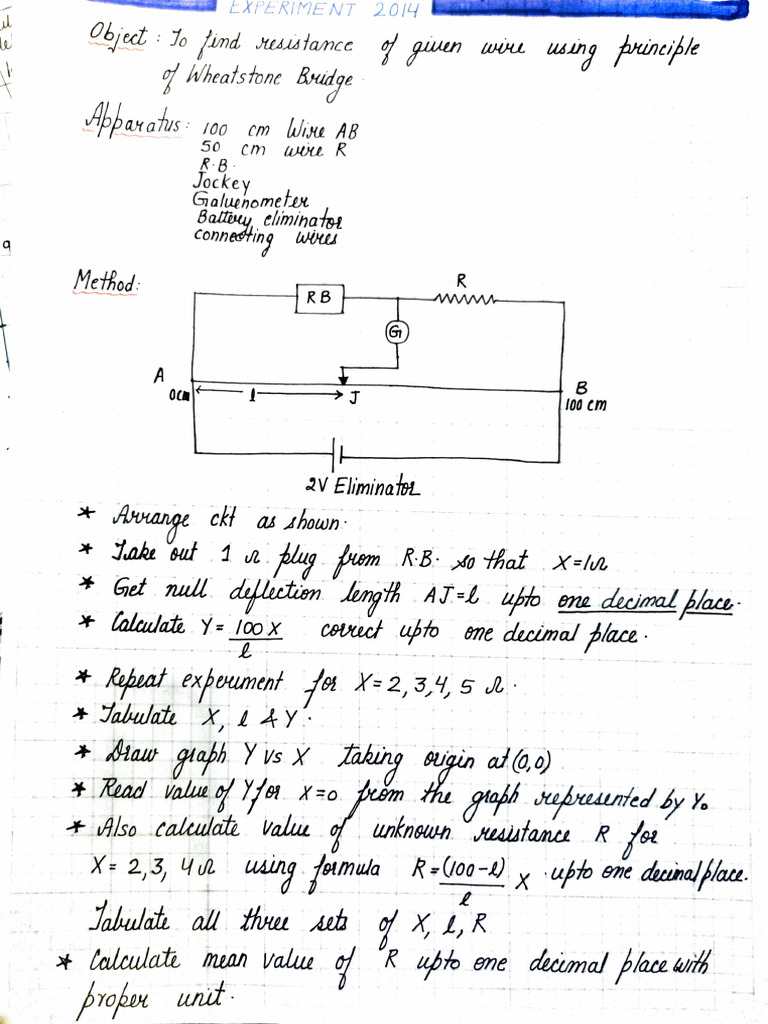 EXPERIMENT 2014
Object: To find resistance of given wire using principle
of Wheatstone Bridge.
Apparatus: 100 cm Wire AB
50 cm wire R
R.B.
Jockey
Galvenometer
Battery eliminator
connecting wires
Method:
R
RB
G
A
B
0cm
l
J
100 cm
2V Eliminator
* Arrange ckt as shown.
* Take out 1 Ω plug from R.B. so that X=1Ω
* Get null deflection length AJ=l upto one decimal place.
* Calculate Y = 100X/l correct upto one decimal place.
* Repeat experiment for X=2,3,4,5 Ω.
* Tabulate X, l & Y.
* Draw graph Y vs X taking origin at (0,0)
* Read value of Y for X=0 from the graph represented by Y₀
* Also calculate value of unknown resistance R for
X= 2,3,4Ω using formula R = (100-l)/l X upto one decimal place.
Tabulate all three sets of X, l, R
* Calculate mean value of R upto one decimal place with
proper unit.